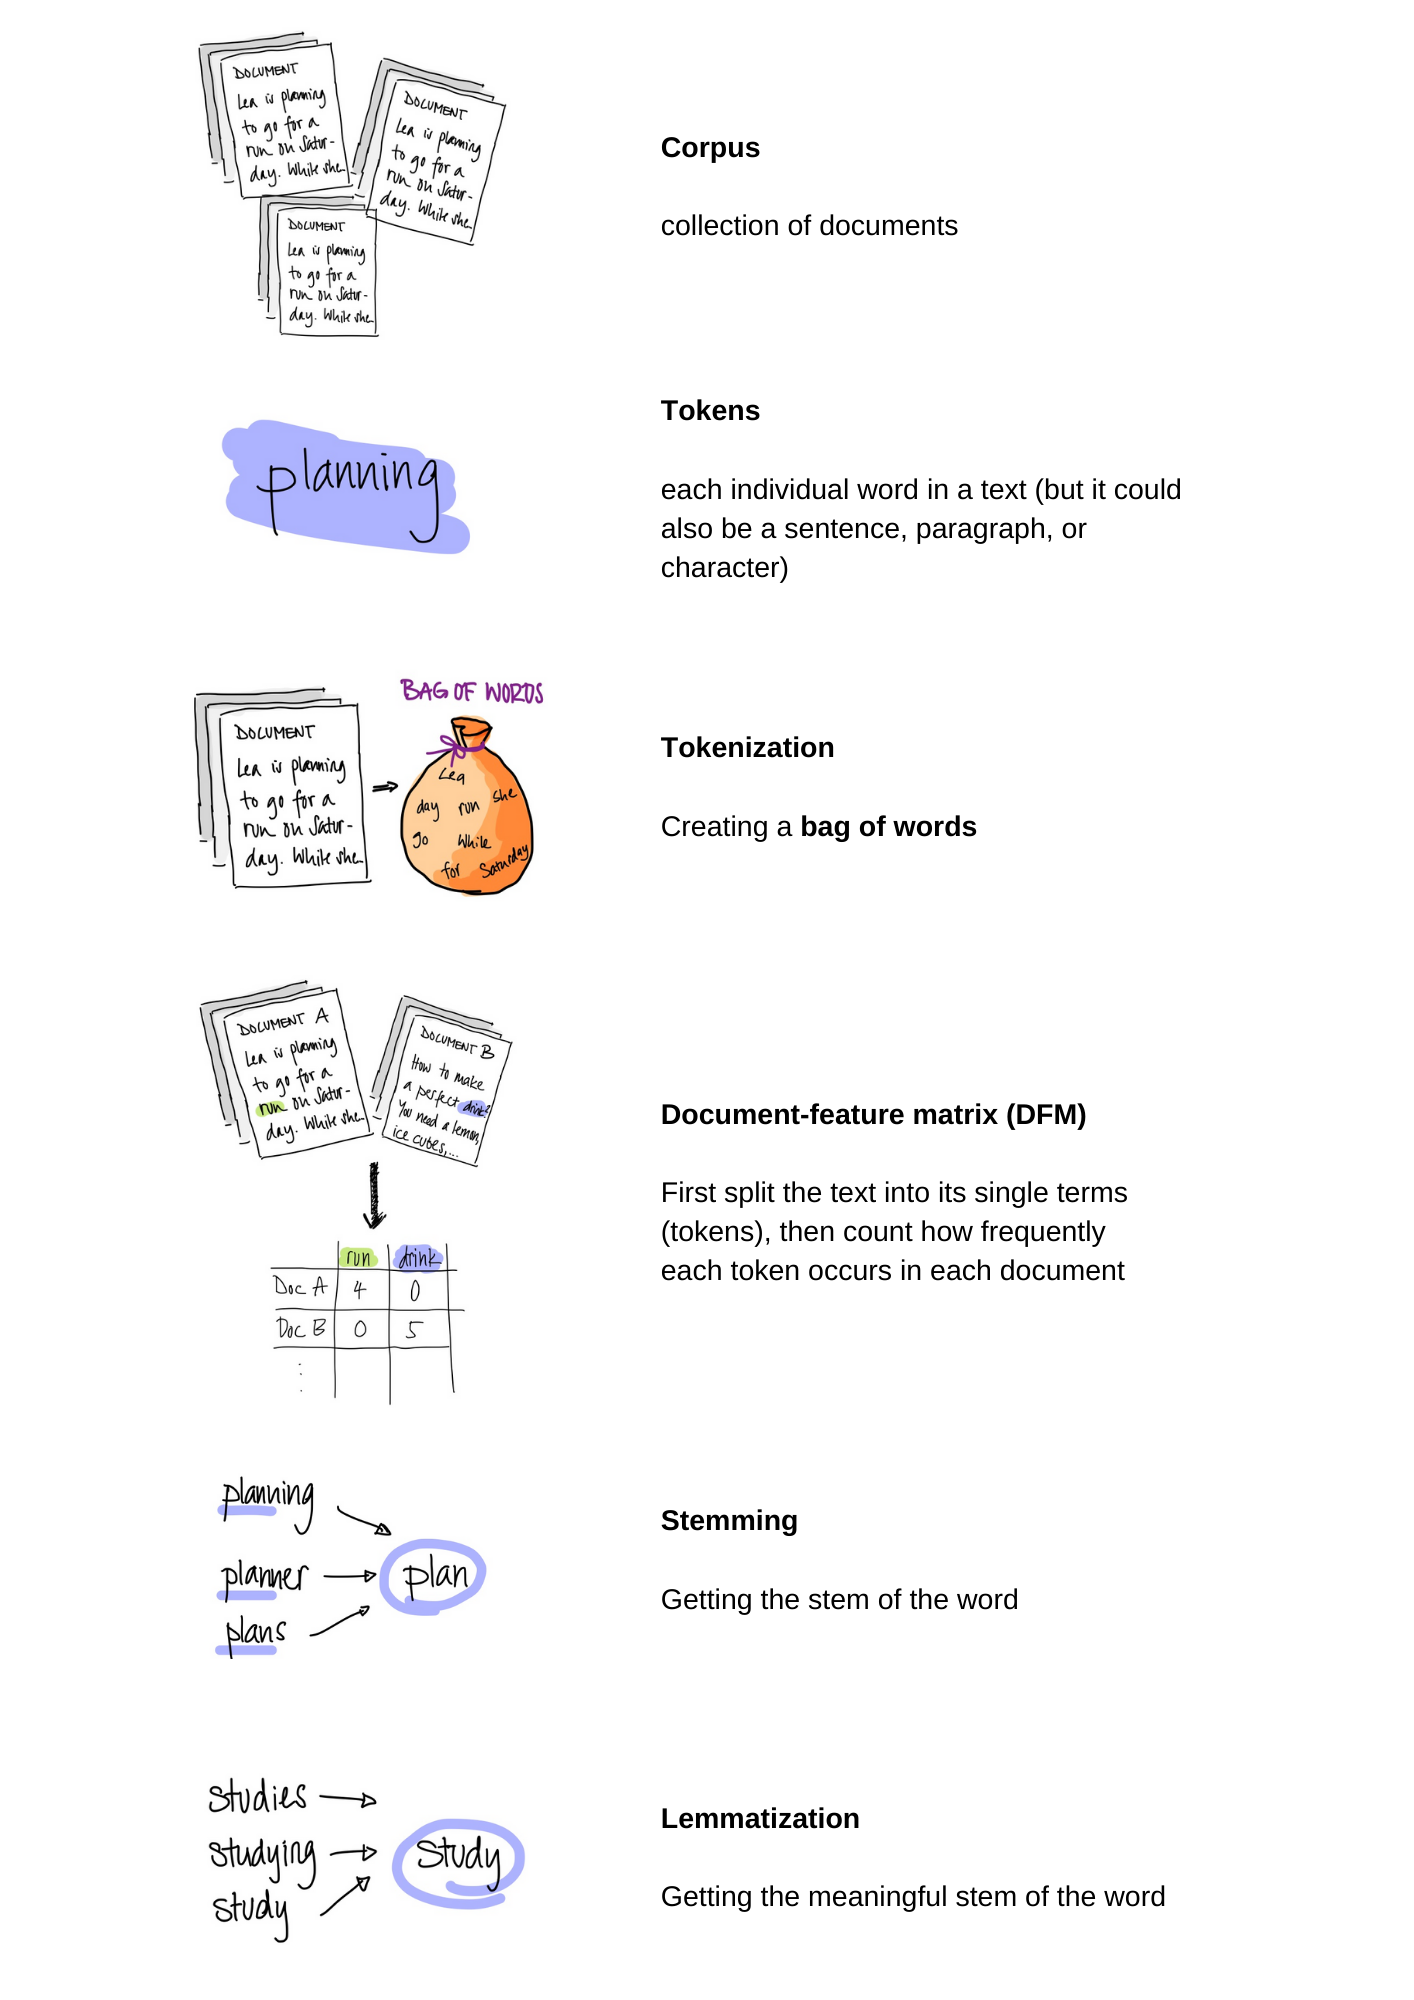 DOCUMENT
Lea is planning
to go for a
run on Satur-
day. While she
DOCUMENT
Lea is planning
to go for a
run on Satur-
day. While she
DOCUMENT
Lea is planning
to go for a
run on Satur-
day. While she
Corpus
collection of documents
planning
Tokens
each individual word in a text (but it could
also be a sentence, paragraph, or
character)
DOCUMENT
Lea is planning
to go for a
run on Satur-
day. While she
BAG OF WORDS
Lea
day run she
go While
for Saturday
Tokenization
Creating a bag of words
DOCUMENT A
Lea is planning
to go for a
run on Satur-
day. While she
DOCUMENT B
How to make
a perfect drink?
You need a lemon,
ice cubes,...
run drink
Doc A 4 0
Doc B 0 5
Document-feature matrix (DFM)
First split the text into its single terms
(tokens), then count how frequently
each token occurs in each document
planning
planner
plans
plan
Stemming
Getting the stem of the word
studies
studying
study
study
Lemmatization
Getting the meaningful stem of the word